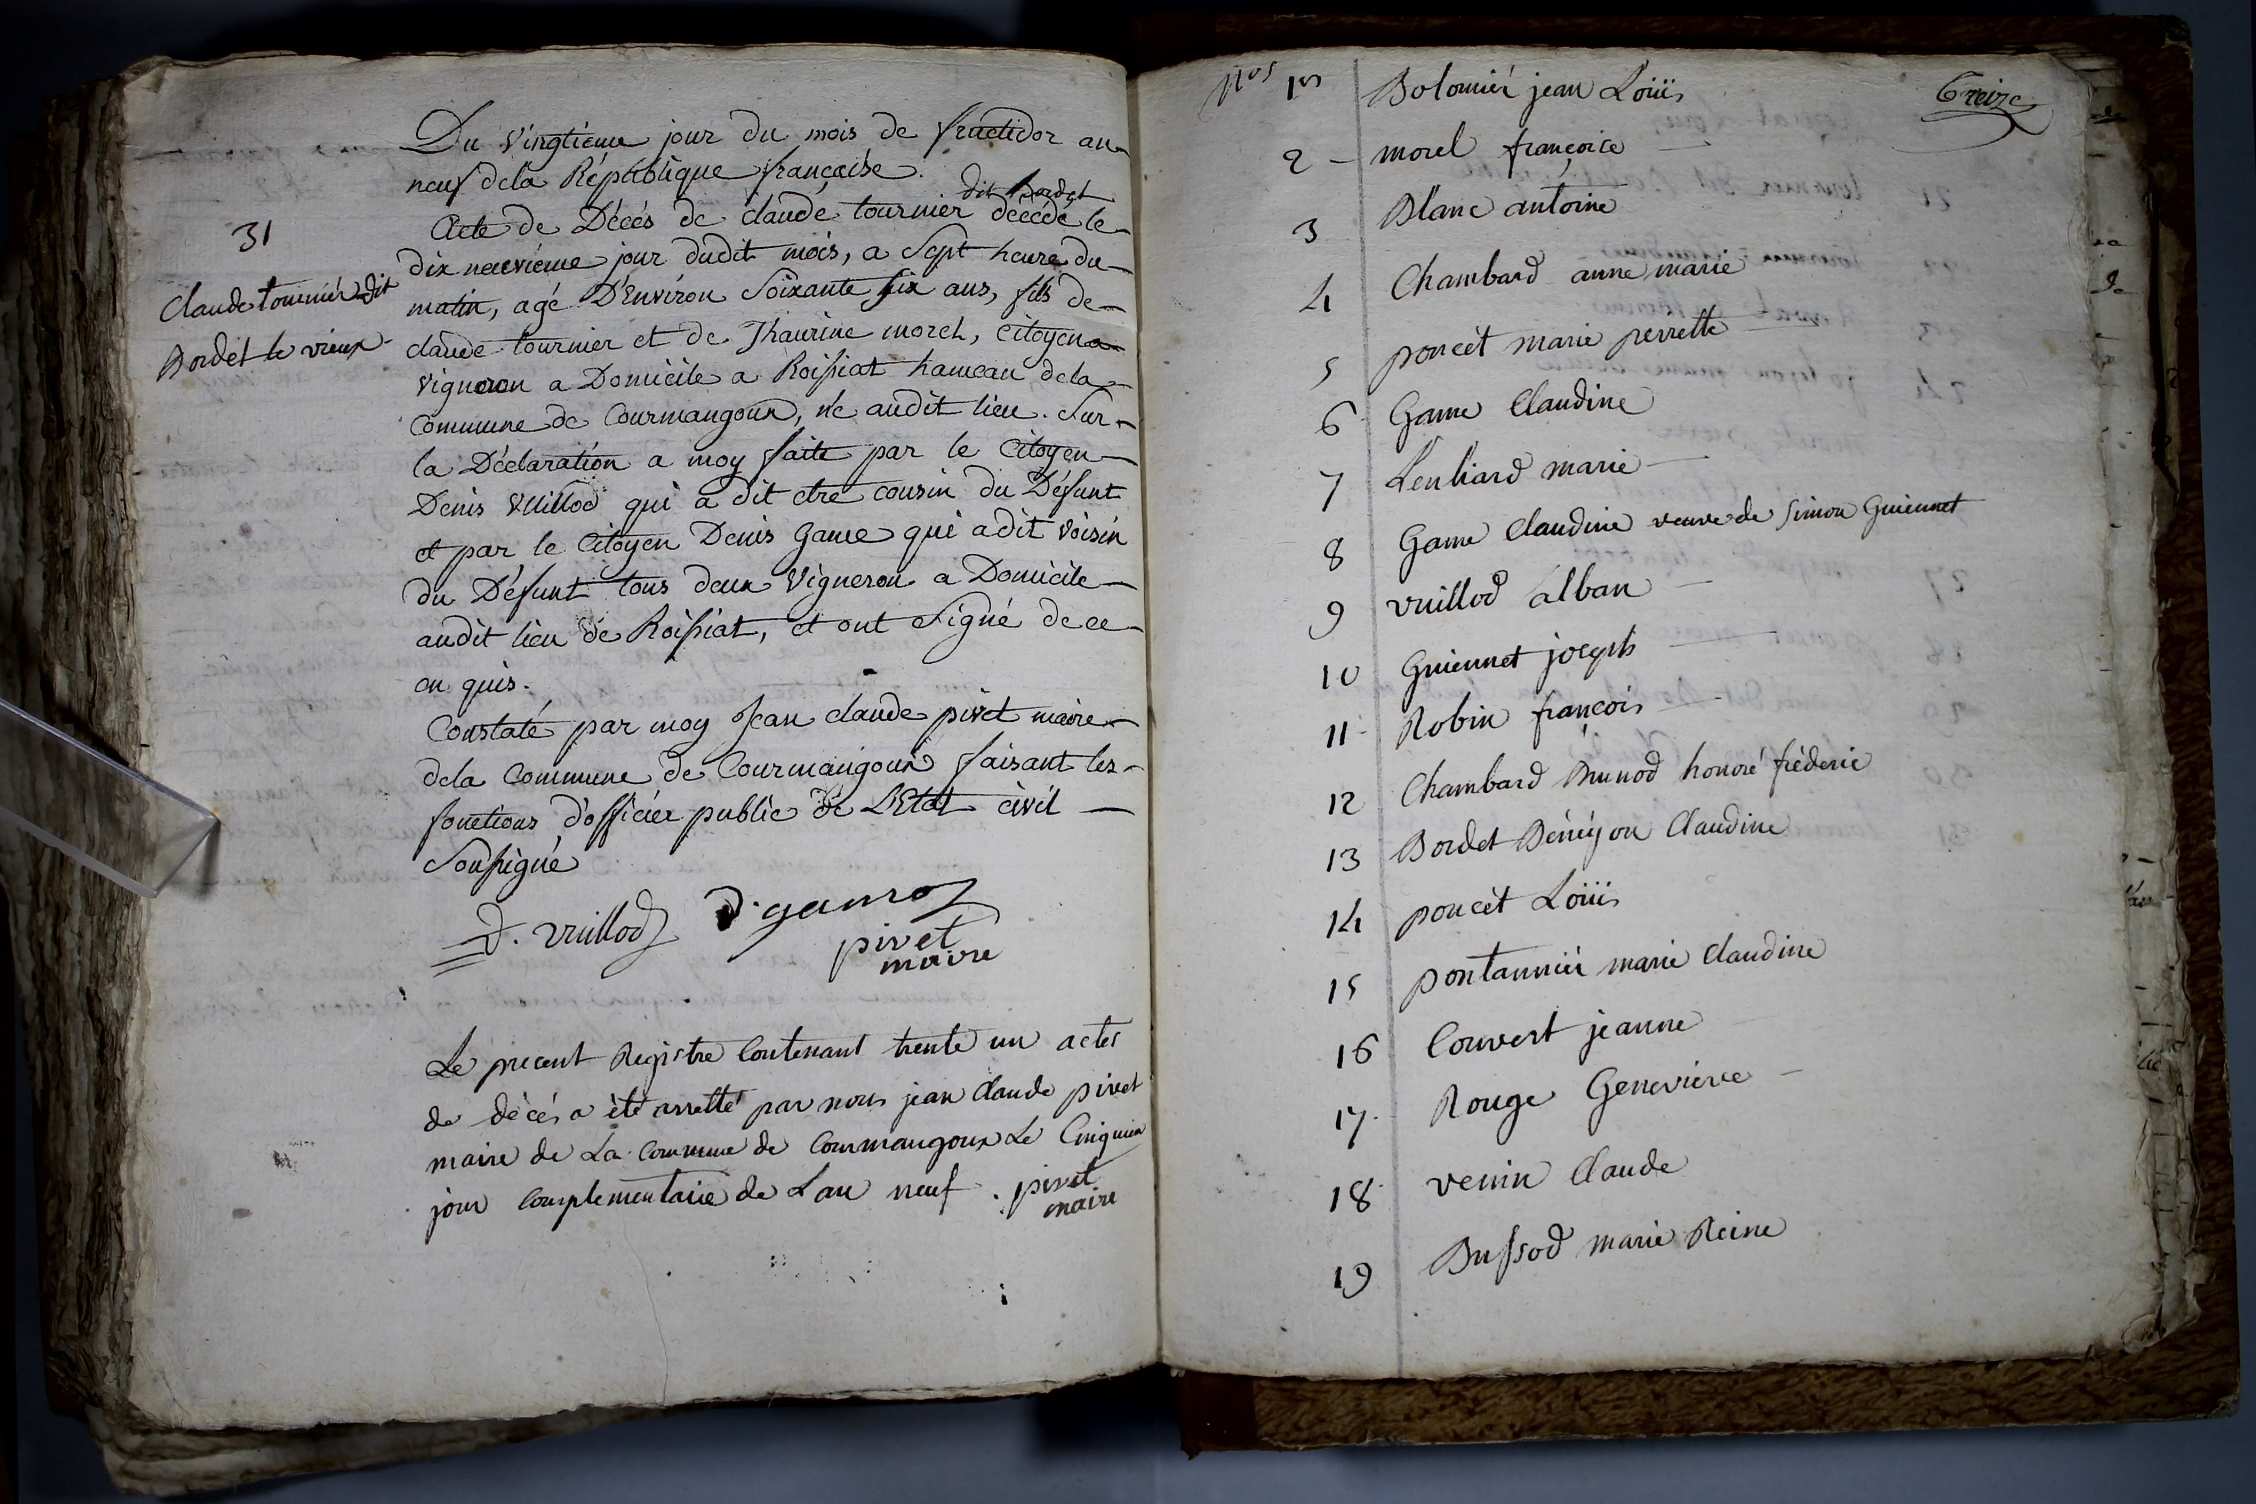 31
Claude tournier dit
Bordet le vieux
Du vingtieme jour du mois de fructidor an
neuf dela République française.
dit Bordet
Acte de Décés de claude tournier décédé le
dix neuvième jour dudit mois, a sept heure du
matin, agé D'Environ soixante six ans, fils de
claude tournier et de Thaurine morel, citoyen
vigneron a Domicile a Roissiat hameau dela
commune de Courmangoux, né audit lieu. Sur
la Déclaration a moy faite par le Citoyen
Denis Vuillod qui a dit etre cousin du Défunt
et par le Citoyen Denis Game qui a dit voisin
du Défunt tous deux vigneron a Domicile
audit lieu de Roissiat, et ont signé de ce
en quis.
Constaté par moy Jean claude pivet maire
dela Commune de Courmangoux faisant les
fonctions d'officier public de L'Etat civil
Soussigné
D. vuillod D. game
pivet
maire
Le precent Registre Contenant trente un actes
de décés a été arretté par nous jean Claude pivet
maire de La Commune de Courmangoux Le Cinquiem
jour Complementaire de L'an neuf. pivet
maire
Nos 1er Bolomier jean Loüis
Treize
2 morel françoise
3 Blanc antoine
4 Chambard anne marie
5 poncet marie perrette
6 Game Claudine
7 Lenliard marie
8 Game Claudine veuve de Simon Guiennet
9 vuillod alban
10 Guiennet joseph
11 Robin françois
12 Chambard Brunod honoré fréderic
13 Bordet Béréyon Claudine
14 poncet Loüis
15 pontannier marie Claudine
16 Couvert jeanne
17 Rouge Genevieve
18 venin Claude
19 Bussod marie Reine